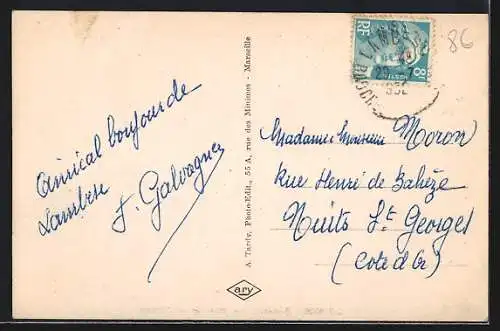 86
RF
8F
LAMBESC
1952
Amical bonjour de
Lambesc
J. Galvagno
A. Tardy, Photo-Edit., 55 A, rue des Minimes - Marseille
ary
Madame Monsieur Moron
Rue Henri de Bahèze
Nuits St Georges
(Cote d'Or)